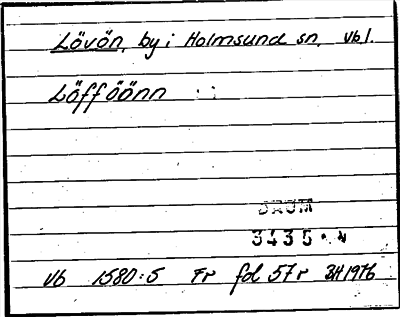 Lövön, by i Holmsund sn, Vbl.
Löfföönn
DAUM
3435
Vb 1580:5 Fr fol 57r BH 1976